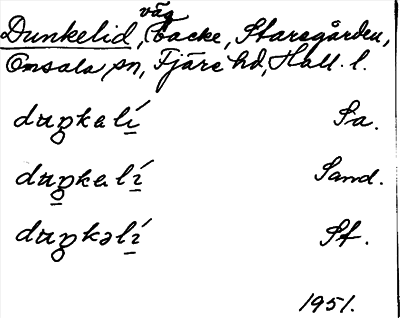 Dunkelid, väg, backe, Staregården,
Onsala sn, Fjäre hd, Hall. l.
duŋkelí̱ Sa.
duŋ̱kelí̱ Sand.
duŋkəlí̱ Sf.
1951.